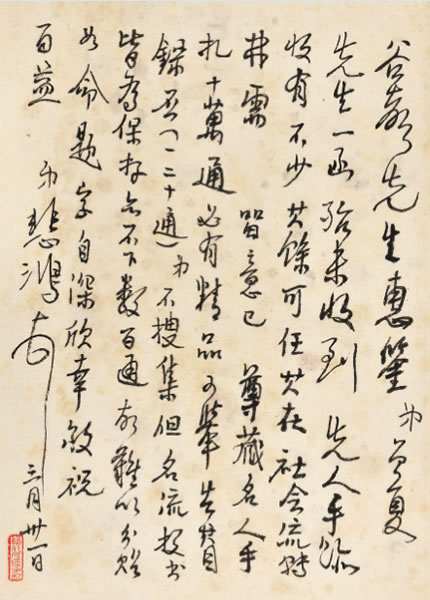 谷 先生惠鉴弟
先生一函殆未收到先人手迹
收有不少其馀可任其在社会流转
弗需留意已尊藏名人手
扎十萬通必有精品可举 目
録否(一二十通)弟不搜集但名流投书
皆为保存亦不下数百通故难以分
如命题字自深欣幸敬祝
百益
弟悲鸿
三月卅一日